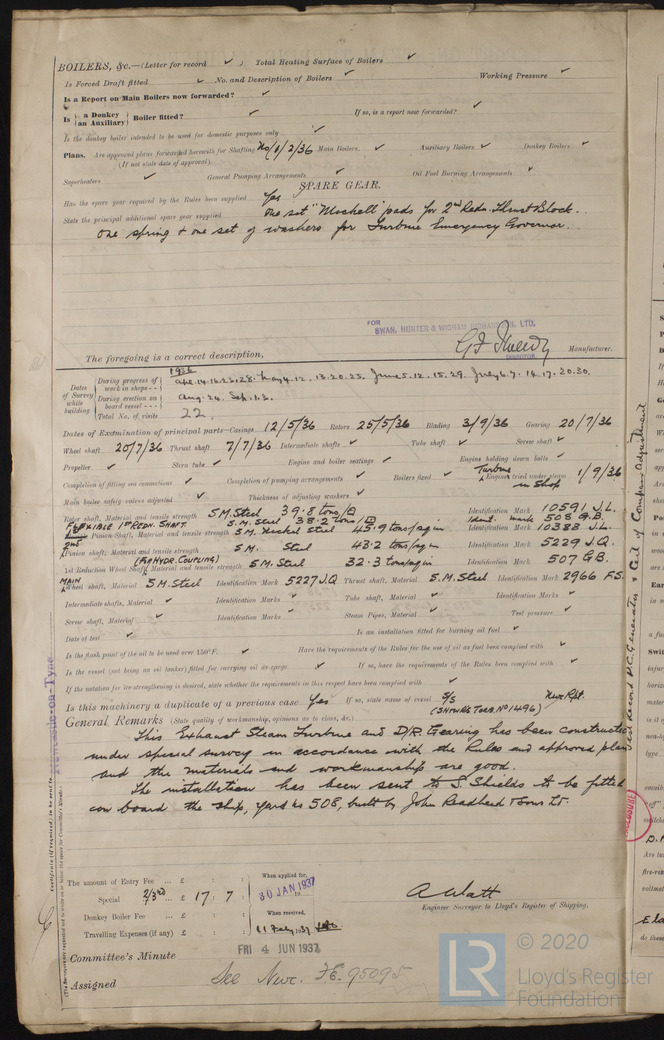 BOILERS, &c.—(Letter for record ✓ ) Total Heating Surface of Boilers ✓
Is Forced Draft fitted ✓ No. and Description of Boilers ✓ Working Pressure ✓
Is a Report on Main Boilers now forwarded? ✓
Is { a Donkey an Auxiliary } Boiler fitted? ✓ If so, is a report now forwarded? ✓
Is the donkey boiler intended to be used for domestic purposes only ✓
Plans. Are approved plans forwarded herewith for Shafting No/1/2/36 Main Boilers ✓ Auxiliary Boilers ✓ Donkey Boilers ✓
(If not state date of approval)
Superheaters ✓ General Pumping Arrangements ✓ Oil Fuel Burning Arrangements ✓
SPARE GEAR.
Has the spare gear required by the Rules been supplied Yes
State the principal additional spare gear supplied One set "Michell" pads for 2nd Redn. Thrust Block.
One spring & one set of washers for Turbine Emergency Governor.
FOR
SWAN, HUNTER & WIGHAM RICHARDSON, LTD.
The foregoing is a correct description, DIRECTOR. Manufacturer.
1936
Dates of Survey while building
During progress of work in shops - - Apl. 14.16.23.28. May 4.12.13.20.25. June 5.12.15.29. July 6.7.14.17.20.30.
During erection on board vessel - - - Aug. 24. Sep. 1.3.
Total No. of visits 22.
Dates of Examination of principal parts—Casings 12/5/36 Rotors 25/5/36 Blading 3/9/36 Gearing 20/7/36
Wheel shaft 20/7/36 Thrust shaft 7/7/36 Intermediate shafts ✓ Tube shaft ✓ Screw shaft ✓
Propeller ✓ Stern tube ✓ Engine and boiler seatings ✓ Engine holding down bolts ✓
Completion of fitting sea connections ✓ Completion of pumping arrangements ✓ Boilers fixed ✓ Turbine Engines tried under steam in shop 1/9/36
Main boiler safety valves adjusted ✓ Thickness of adjusting washers ✓
Rotor shaft, Material and tensile strength S.M. Steel 39.8 tons/□ Identification Mark 10591 J.L.
FLEXIBLE 1st REDN. SHAFT S.M. Steel 38.2 tons/□ Ident. mark 508 G.B.
Pinion Shaft, Material and tensile strength S.M. Nickel Steel 45.9 tons/sq in Identification Mark 10388 J.L.
2nd Pinion shaft, Material and tensile strength S.M. Steel 43.2 tons/sq in Identification Mark 5229 J.Q.
1st Reduction Wheel Shaft, Material and tensile strength (FOR HYDR. COUPLING) S.M. Steel 32.3 tons/sq in Identification Mark 507 G.B.
MAIN Wheel shaft, Material S.M. Steel Identification Mark 5227 J.Q Thrust shaft, Material S.M. Steel Identification Mark 2966 F.S.
Intermediate shafts, Material ✓ Identification Marks ✓ Tube shaft, Material ✓ Identification Marks ✓
Screw shaft, Material ✓ Identification Marks ✓ Steam Pipes, Material ✓ Test pressure ✓
Date of test ✓ Is an installation fitted for burning oil fuel ✓
Is the flash point of the oil to be used over 150°F. ✓ Have the requirements of the Rules for the use of oil as fuel been complied with ✓
Is the vessel (not being an oil tanker) fitted for carrying oil as cargo ✓ If so, have the requirements of the Rules been complied with ✓
If the notation for ice strengthening is desired, state whether the requirements in this respect have been complied with ✓
Is this machinery a duplicate of a previous case Yes If so, state name of vessel S/S Nwc. Rpt.
General Remarks (State quality of workmanship, opinions as to class, &c.)
This Exhaust Steam Turbine and D/R Gearing has been constructed
under special survey in accordance with the Rules and approved plans
and the materials and workmanship are good.
The installation has been sent to S. Shields to be fitted
on board the ship, yard No 508, built by John Readhead & Sons Ld.
The amount of Entry Fee ... £ : :
Special 2/3rd ... £ 17 : 7 :
Donkey Boiler Fee ... £ : :
Travelling Expenses (if any) £ : :
When applied for,
30 JAN 1937
When received,
Engineer Surveyor to Lloyd's Register of Shipping.
Committee's Minute FRI 4 JUN 1937
Assigned See Nwc. F.E. 95095
Newcastle-on-Tyne
Certificate (if required) to be sent to
LR © 2020
Lloyd's Register
Foundation